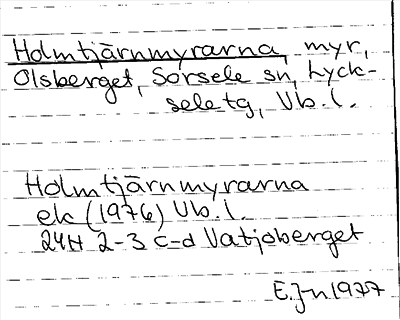 Holmtjärnmyrarna, myr,
Olsberget, Sorsele sn, Lyck-
sele tg, Vb. l.
Holmtjärnmyrarna
ek (1976) Vb. l.
24H 2-3 c-d Vatjoberget
E.J-n 1977